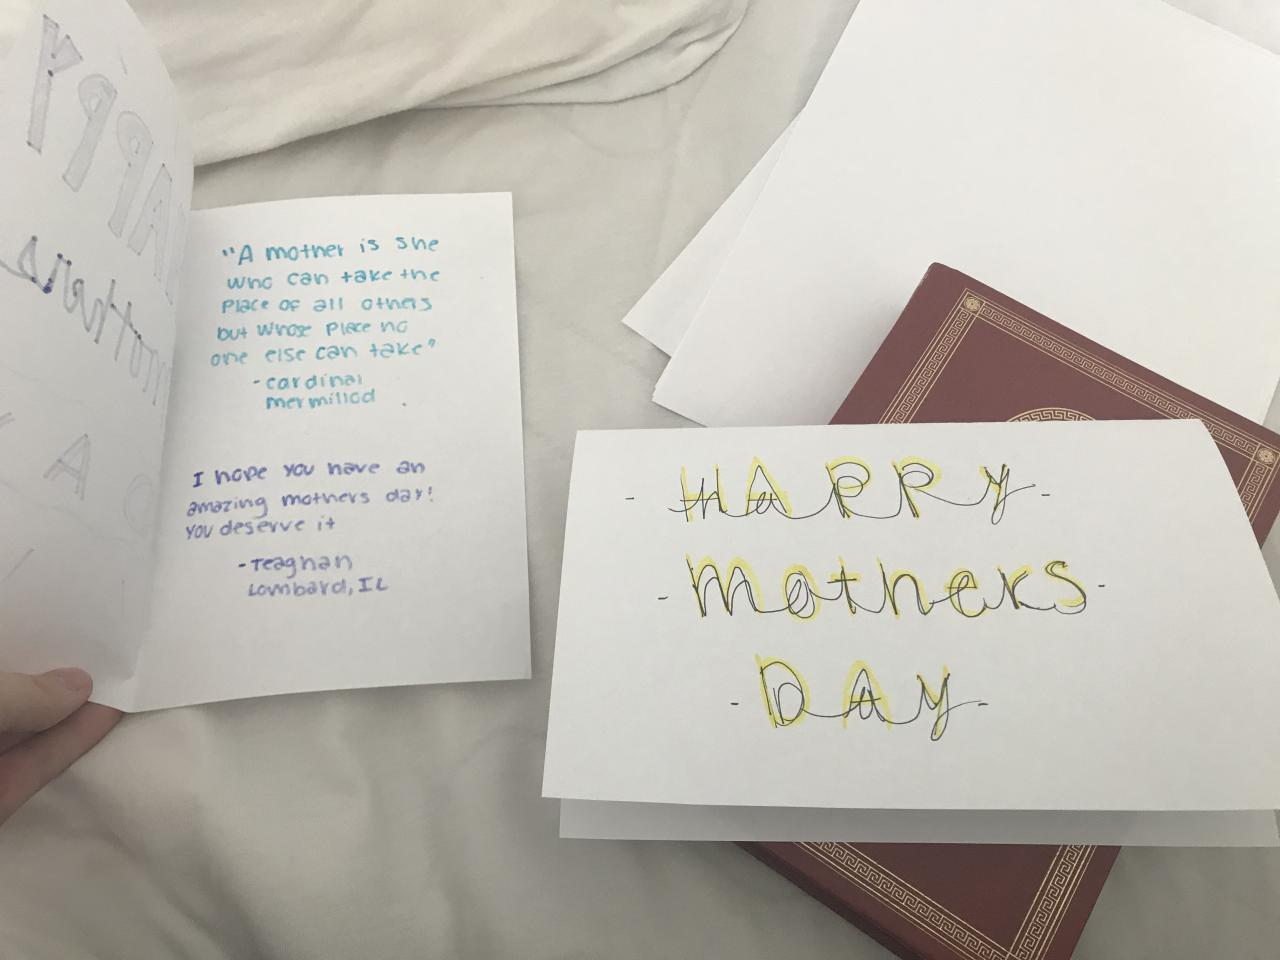 HAPPY
Mothers
DAY
"A mother is she
who can take the
place of all others
but whose place no
one else can take"
- cardinal
mermillod
I hope you have an
amazing mothers day!
You deserve it
- Teaghan
Lombard, IL
- HAPPY -
- Mothers -
- DAY -